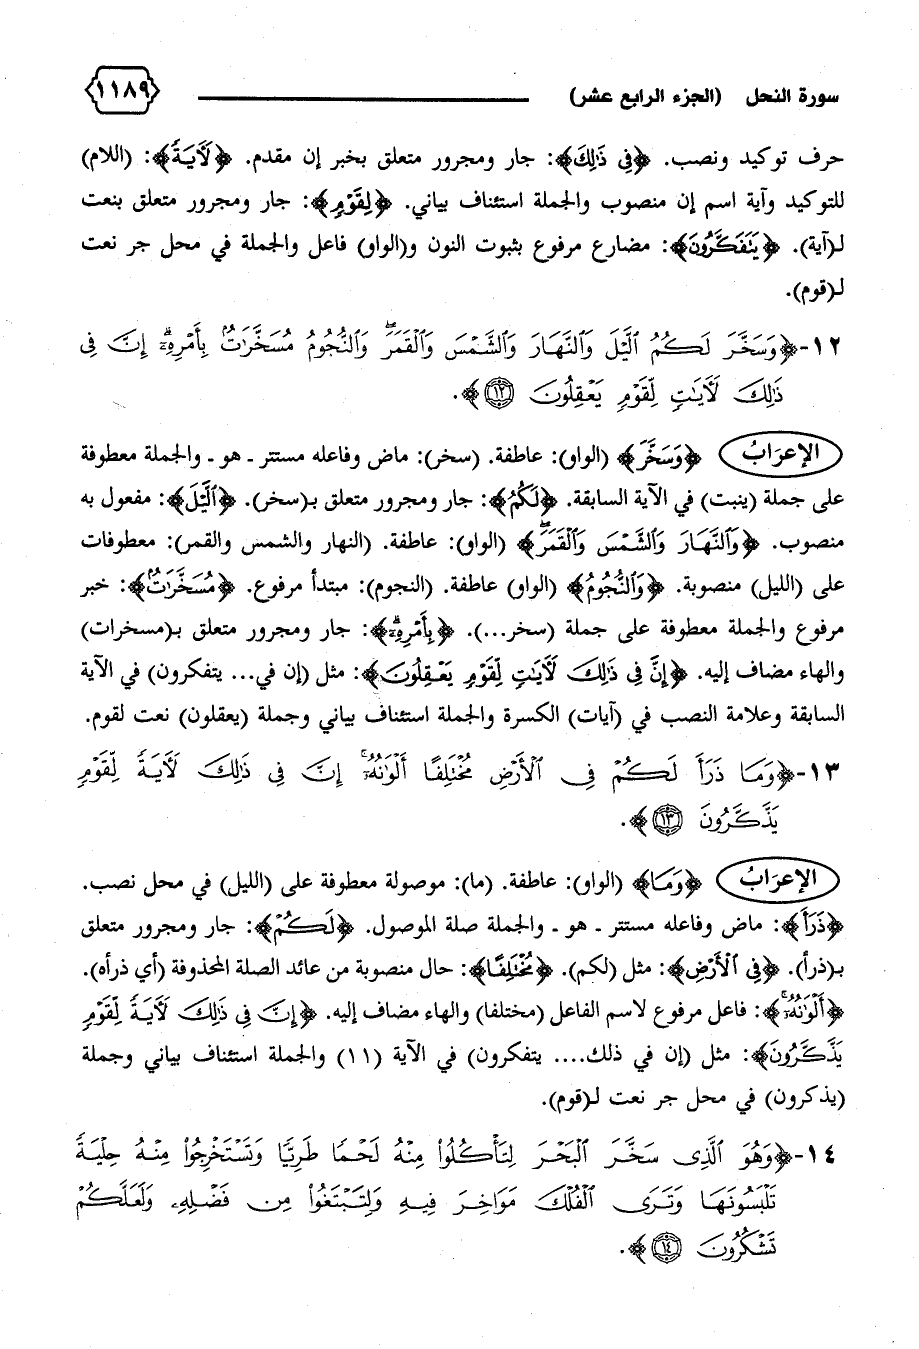 سورة النحل (الجزء الرابع عشر) ١١٨٩
حرف توكيد ونصب. ﴿فِي ذَٰلِكَ﴾: جار ومجرور متعلق بخبر إن مقدم. ﴿لَآيَةً﴾: (اللام)
للتوكيد وآية اسم إن منصوب والجملة استئناف بياني. ﴿لِقَوْمٍ﴾: جار ومجرور متعلق بنعت
لـ(آية). ﴿يَتَفَكَّرُونَ﴾: مضارع مرفوع بثبوت النون و(الواو) فاعل والجملة في محل جر نعت
لـ(قوم).
١٢-﴿وَسَخَّرَ لَكُمُ ٱلَّيْلَ وَٱلنَّهَارَ وَٱلشَّمْسَ وَٱلْقَمَرَ ۖ وَٱلنُّجُومُ مُسَخَّرَٰتٌۢ بِأَمْرِهِۦٓ ۗ إِنَّ فِي
ذَٰلِكَ لَآيَٰتٍ لِّقَوْمٍ يَعْقِلُونَ ١٢﴾.
الإعرَابُ ﴿وَسَخَّرَ﴾ (الواو): عاطفة. (سخر): ماض وفاعله مستتر ـ هو ـ والجملة معطوفة
على جملة (ينبت) في الآية السابقة. ﴿لَكُمُ﴾: جار ومجرور متعلق بـ(سخر). ﴿ٱلَّيْلَ﴾: مفعول به
منصوب. ﴿وَٱلنَّهَارَ وَٱلشَّمْسَ وَٱلْقَمَرَ ۖ﴾ (الواو): عاطفة. (النهار والشمس والقمر): معطوفات
على (الليل) منصوبة. ﴿وَٱلنُّجُومُ﴾ (الواو) عاطفة. (النجوم): مبتدأ مرفوع. ﴿مُسَخَّرَٰتٌۢ﴾: خبر
مرفوع والجملة معطوفة على جملة (سخر...). ﴿بِأَمْرِهِۦٓ ۗ﴾: جار ومجرور متعلق بـ(مسخرات)
والهاء مضاف إليه. ﴿إِنَّ فِي ذَٰلِكَ لَآيَٰتٍ لِّقَوْمٍ يَعْقِلُونَ﴾: مثل (إن في... يتفكرون) في الآية
السابقة وعلامة النصب في (آيات) الكسرة والجملة استئناف بياني وجملة (يعقلون) نعت لقوم.
١٣-﴿وَمَا ذَرَأَ لَكُمْ فِي ٱلْأَرْضِ مُخْتَلِفًا أَلْوَٰنُهُۥٓ ۗ إِنَّ فِي ذَٰلِكَ لَآيَةً لِّقَوْمٍ
يَذَّكَّرُونَ ١٣﴾.
الإعرَابُ ﴿وَمَا﴾ (الواو): عاطفة. (ما): موصولة معطوفة على (الليل) في محل نصب.
﴿ذَرَأَ﴾: ماض وفاعله مستتر ـ هو ـ والجملة صلة الموصول. ﴿لَكُمْ﴾: جار ومجرور متعلق
بـ(ذرأ). ﴿فِي ٱلْأَرْضِ﴾: مثل (لكم). ﴿مُخْتَلِفًا﴾: حال منصوبة من عائد الصلة المحذوفة (أي ذرأه).
﴿أَلْوَٰنُهُۥٓ ۗ﴾: فاعل مرفوع لاسم الفاعل (مختلفا) والهاء مضاف إليه. ﴿إِنَّ فِي ذَٰلِكَ لَآيَةً لِّقَوْمٍ
يَذَّكَّرُونَ﴾: مثل (إن في ذلك.... يتفكرون) في الآية (١١) والجملة استئناف بياني وجملة
(يذكرون) في محل جر نعت لـ(قوم).
١٤-﴿وَهُوَ ٱلَّذِي سَخَّرَ ٱلْبَحْرَ لِتَأْكُلُوا۟ مِنْهُ لَحْمًا طَرِيًّا وَتَسْتَخْرِجُوا۟ مِنْهُ حِلْيَةً
تَلْبَسُونَهَا وَتَرَى ٱلْفُلْكَ مَوَاخِرَ فِيهِ وَلِتَبْتَغُوا۟ مِن فَضْلِهِۦ وَلَعَلَّكُمْ
تَشْكُرُونَ ١٤﴾.